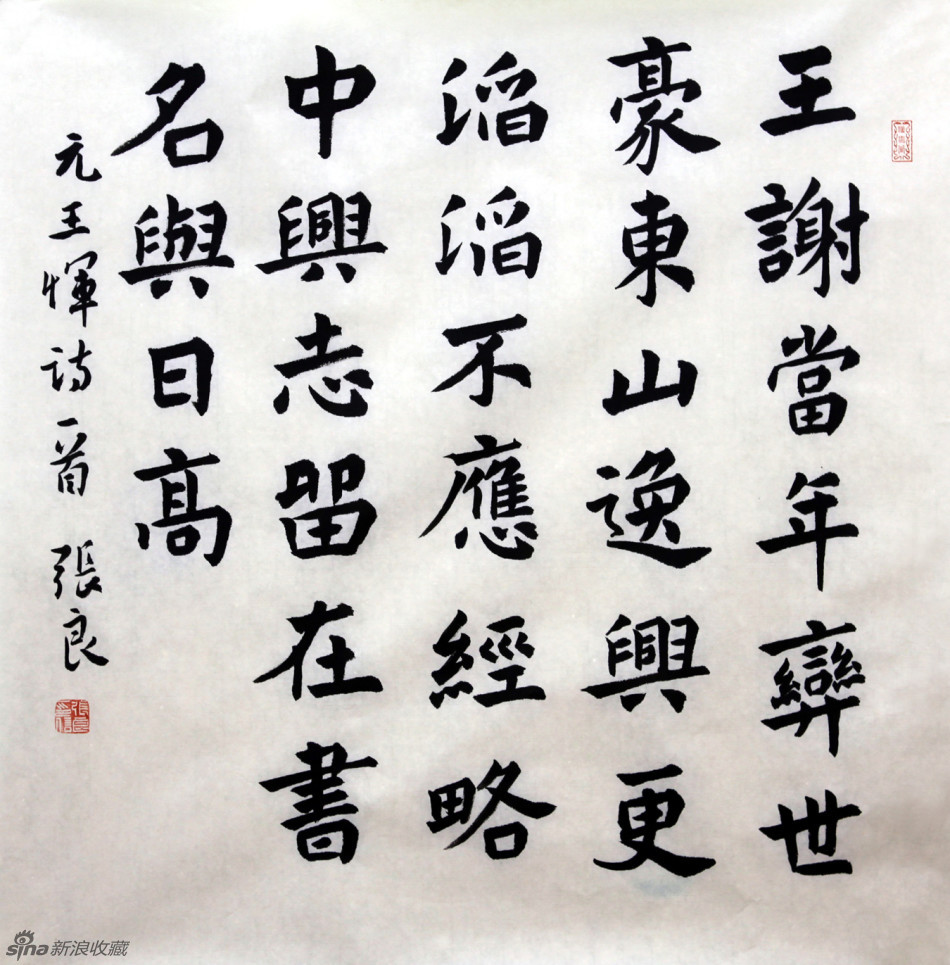 王謝當年奕世
豪東山逸興更
滔滔不應經略
中興志留在書
名與日高
元王惲诗一首 張良
張良
sina新浪收藏